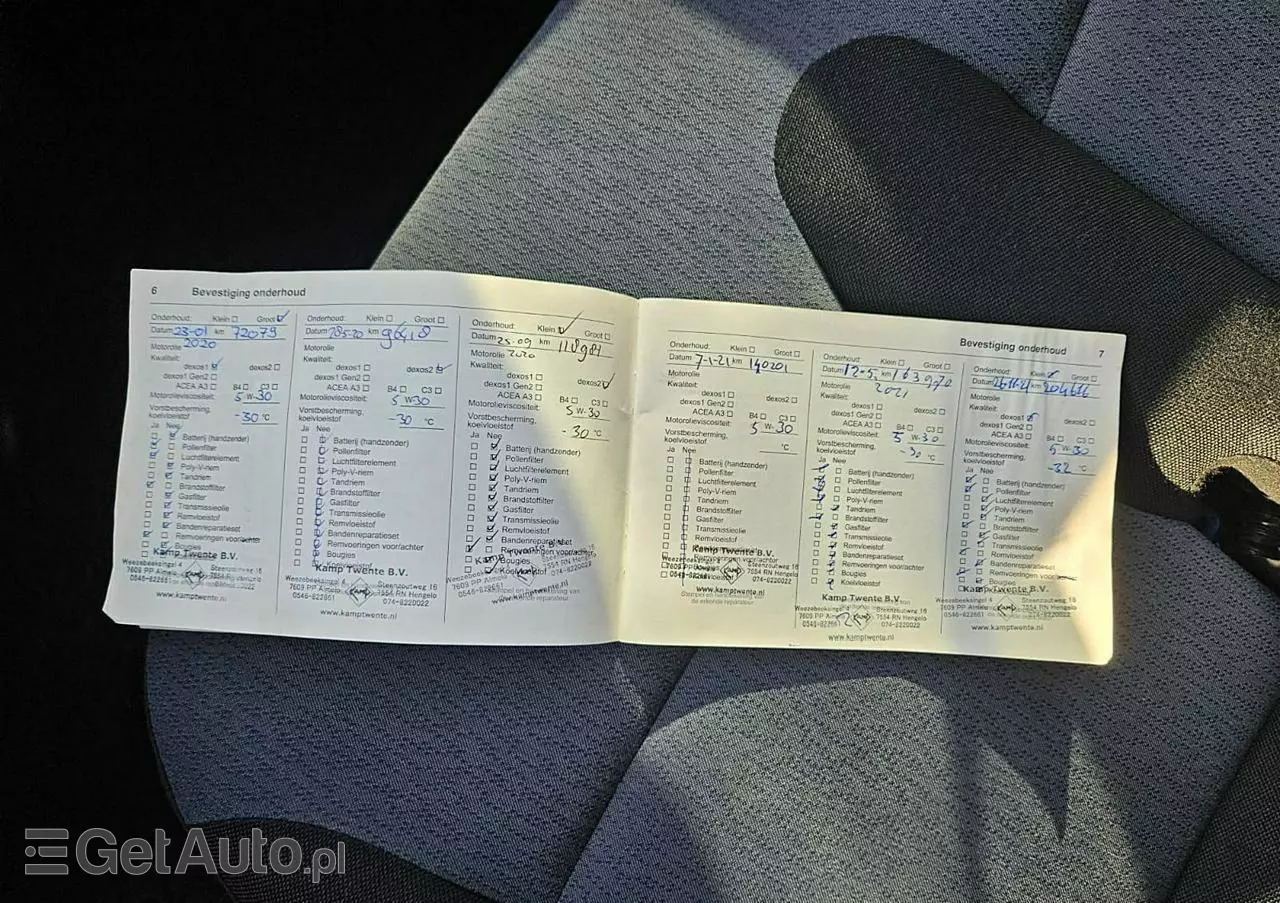 6 Bevestiging onderhoud
Onderhoud: Klein Groot
Datum 23-01 km 72079
2020
Motorolie
Kwaliteit: dexos1 dexos2
dexos1 Gen2
ACEA A3 B4 C3
Motorolieviscositeit: 5 W-30
Vorstbescherming,
koelvloeistof -30 °C
Ja Nee
Batterij (handzender)
Pollenfilter
Luchtfilterelement
Poly-V-riem
Tandriem
Brandstoffilter
Gasfilter
Transmissieolie
Remvloeistof
Bandenreparatieset
Remvoeringen voor/achter
Bougies
Kamp Twente B.V.
Weezebeeksingel 4
7609 PP Almelo
0546-822661
www.kamptwente.nl
Onderhoud: Klein Groot
Datum km 96418
Kwaliteit:
dexos1 dexos2
dexos1 Gen2
ACEA A3 B4 C3
Motorolieviscositeit: 5 W-30
Vorstbescherming,
koelvloeistof -30 °C
Ja Nee
Batterij (handzender)
Pollenfilter
Luchtfilterelement
Poly-V-riem
Tandriem
Brandstoffilter
Gasfilter
Transmissieolie
Remvloeistof
Bandenreparatieset
Remvoeringen voor/achter
Bougies
Kamp Twente B.V.
Weezebeeksingel 4
7609 PP Almelo
0546-822661
Steenzoutweg 16
7554 RN Hengelo
074-8220022
KAMP
www.kamptwente.nl
Onderhoud: Klein Groot
Datum 25-09 km 118984
Motorolie 2020
Kwaliteit:
dexos1 dexos2
dexos1 Gen2
ACEA A3 B4 C3
Motorolieviscositeit: 5 W-30
Vorstbescherming,
koelvloeistof -30 °C
Ja Nee
Batterij (handzender)
Pollenfilter
Luchtfilterelement
Poly-V-riem
Tandriem
Brandstoffilter
Gasfilter
Transmissieolie
Remvloeistof
Bandenreparatieset
Remvoeringen voor/achter
Bougies
Koelvloeistof
Weezebeeksingel 4
7609 PP Almelo
0546-822661
7554 RN Hengelo
074-8220022
www.kamptwente.nl
Bevestiging onderhoud 7
Onderhoud: Klein Groot
Datum 7-1-21 km 140201
Motorolie
Kwaliteit:
dexos1 dexos2
dexos1 Gen2
ACEA A3 B4 C3
Motorolieviscositeit: 5 W-30
Vorstbescherming,
koelvloeistof °C
Ja Nee
Batterij (handzender)
Pollenfilter
Luchtfilterelement
Poly-V-riem
Tandriem
Brandstoffilter
Gasfilter
Transmissieolie
Remvloeistof
Bandenreparatieset
Remvoeringen voor/achter
Koelvloeistof
Kamp Twente B.V.
Weezebeeksingel 4
7609 PP Almelo
0546-822661
Steenzoutweg 16
7554 RN Hengelo
074-8220022
www.kamptwente.nl
Onderhoud: Klein Groot
Datum 12-5 km 163970
Motorolie 2021
Kwaliteit:
dexos1 dexos2
dexos1 Gen2
ACEA A3 B4 C3
Motorolieviscositeit: 5 W-30
Vorstbescherming,
koelvloeistof -30 °C
Ja Nee
Batterij (handzender)
Pollenfilter
Luchtfilterelement
Poly-V-riem
Tandriem
Brandstoffilter
Gasfilter
Transmissieolie
Remvloeistof
Bandenreparatieset
Remvoeringen voor/achter
Bougies
Koelvloeistof
Kamp Twente B.V.
Weezebeeksingel 4
7609 PP Almelo
0546-822661
Steenzoutweg 16
7554 RN Hengelo
074-8220022
KAMP
www.kamptwente.nl
Onderhoud: Klein Groot
Datum 26-11-21 km 204686
Motorolie
Kwaliteit:
dexos1 dexos2
dexos1 Gen2
ACEA A3 B4 C3
Motorolieviscositeit: 5 W-30
Vorstbescherming,
koelvloeistof -32 °C
Ja Nee
Batterij (handzender)
Pollenfilter
Luchtfilterelement
Poly-V-riem
Tandriem
Brandstoffilter
Gasfilter
Transmissieolie
Remvloeistof
Bandenreparatieset
Remvoeringen voor/achter
Bougies
Kamp Twente B.V.
Weezebeeksingel 4
7609 PP Almelo
0546-822661
Steenzoutweg 16
7554 RN Hengelo
074-8220022
www.kamptwente.nl
GetAuto.pl